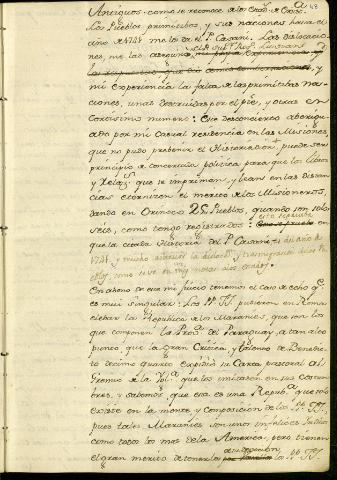 Antiguos. como se reconoce
48
Los Pueblos primitivos, y sus naciones hasta el
año de 1741 me los da el P. Casani. Las dislocacio-
nes, me las asegura
y
mi experiencia la falta de las primitivas na-
ciones, unas destruidas por el pie, y otras en
cortisimo numero: Este desconcierto aberigu-
ado por mi casual residencia en las Misiones,
que no pudo prebenir el Historiador, puede ser
principio de concertada politica para que los Libros
y Relaz.s que se impriman, y lean en las distan-
cias eternizen el merito de los Misioneros,
dando en Orinoco 26 Pueblos, quando son solo
seis, como tengo registrado: esto se prueba en
que la citada Historia del P. Casani, es del año de
1741. y mucho anterior la
como se ve en mis notas
En abono de ese mi juicio tenemos el caso de echo q.e
es mui singular: Los PP. JJ. pusieron en Roma
celebrar la Republica de los Maranies, que son los
que componen la Prov.a del Paraguay, a tan alto
punto que la gran Critica, y talento de Benedic-
to decimo quarto expidió su Carta pastoral al
Gremio de la Ygl.a que los imitasen en sus costum-
bres, y sabemos que esa es una Repub.a que solo
existe en la mente y composicion de los PP. JJ.
pues tales Maranies son unos infelices Indios
como todos los mas de la America, pero tienen
el gran merito de tener la los PP. JJ.